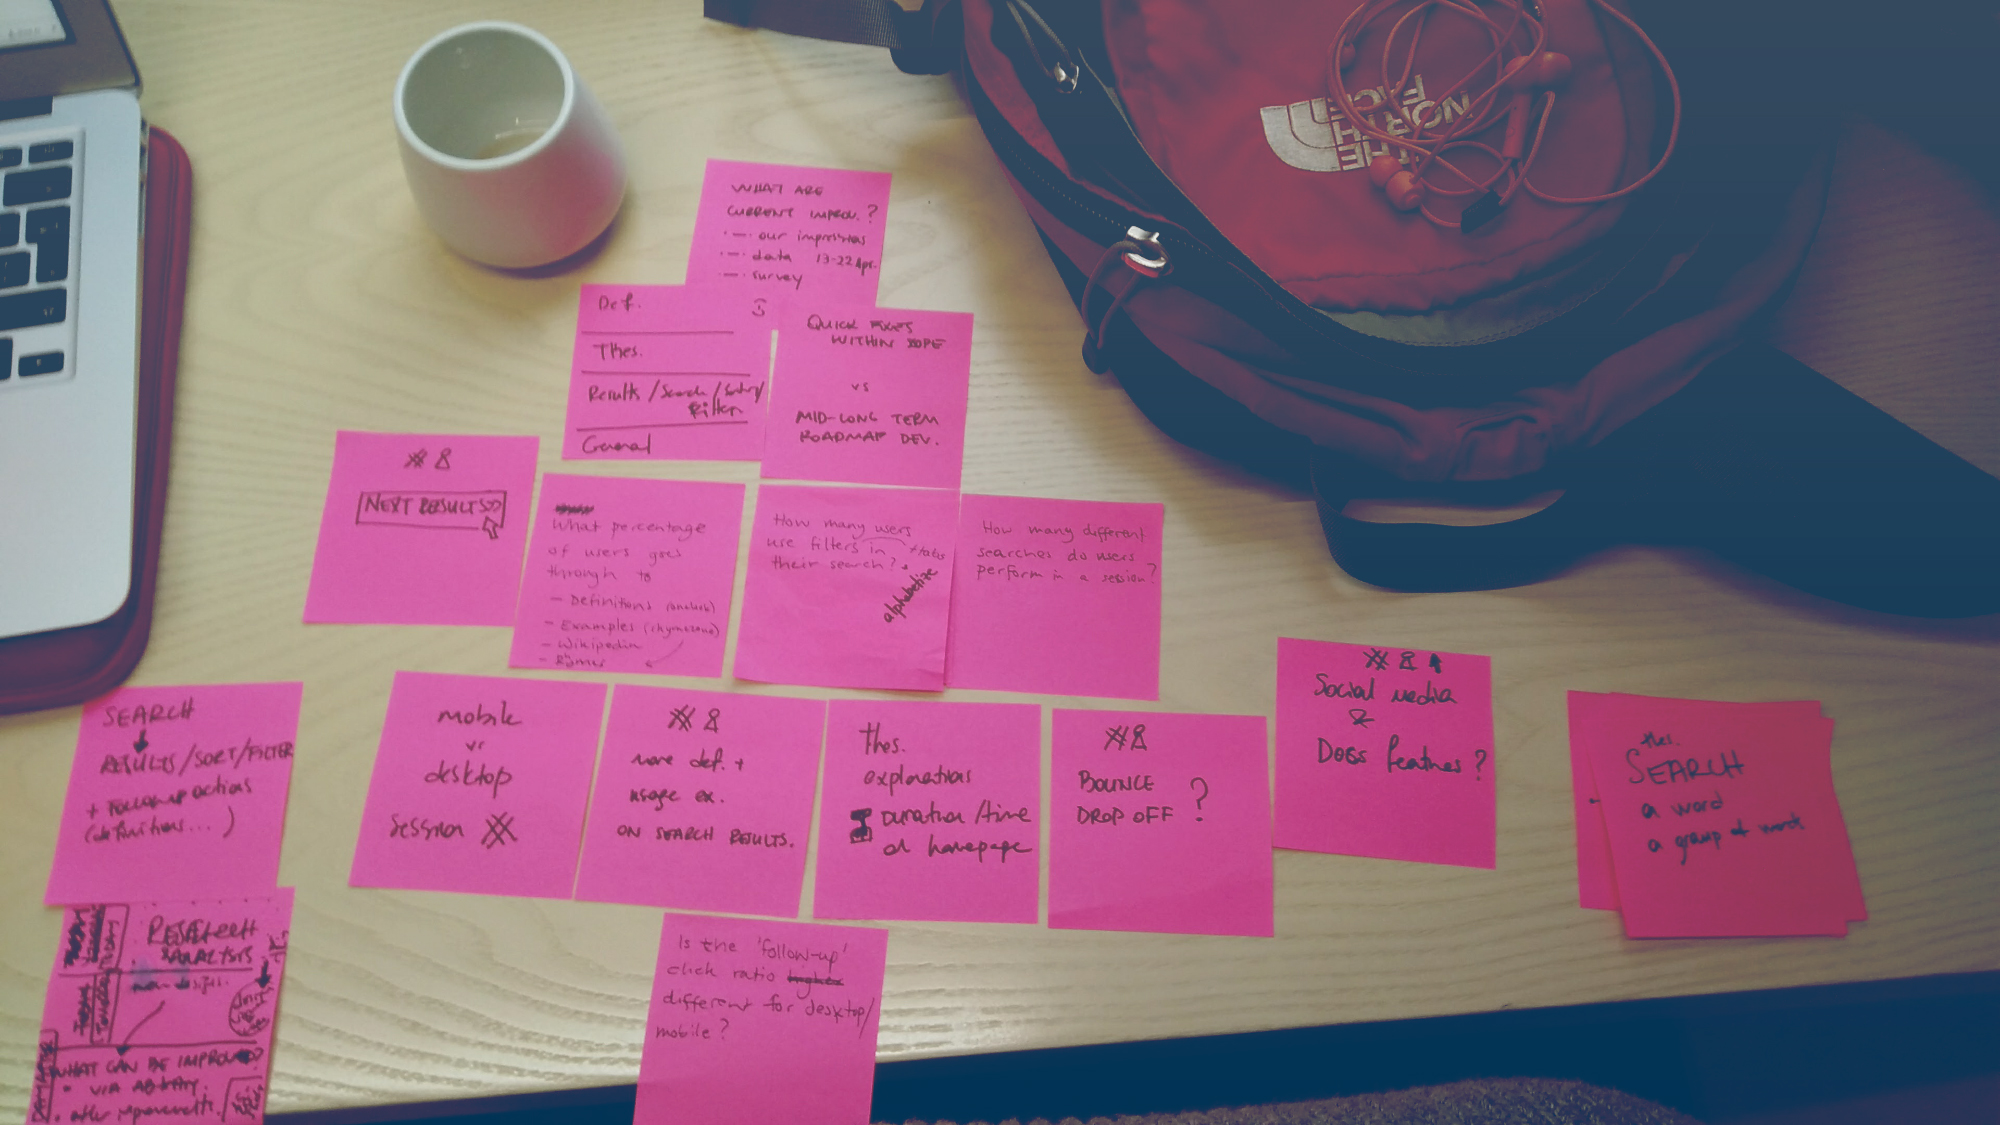 THE
NORTH
FACE
WHAT ARE
CURRENT IMPROV. ?
- our impressions
- data 13-22 Apr.
- survey
Def.
Thes.
Results / Search / Sort /
Filter
General
QUICK FIXES
WITHIN
vs
MID-LONG TERM
ROADMAP DEV.
#
NEXT RESULTS >>
What percentage
of users goes
through to
- Definitions
- Examples (rhymezone)
- Wikipedia
How many users
use filters in + tabs
their search?
alphabetize
How many different
searches do users
perform in a session?
SEARCH
RESULTS/SORT/FILTER
+ followup actions
(definitions...)
mobile
vs
desktop
session #
# &
more def. +
usage ex.
ON SEARCH RESULTS.
thes.
explorations
DURATION /time
at homepage
# &
BOUNCE
DROP OFF ?
#
Social media
&
DOES features ?
thes.
SEARCH
a word
a group of words
RESEARCH
ANALYSIS
WHAT CAN BE IMPROVED?
VIA
other improvements.
Is the 'follow-up'
click ratio
different for desktop/
mobile?